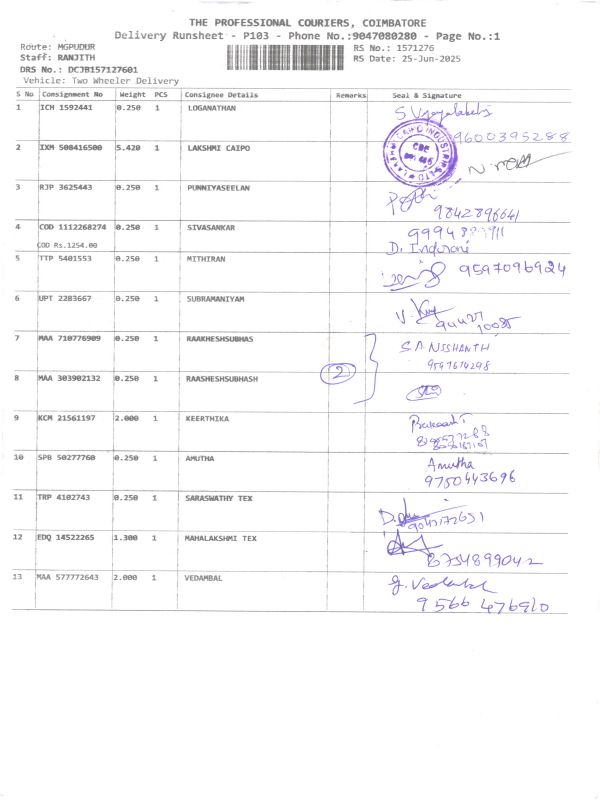 THE PROFESSIONAL COURIERS, COIMBATORE
Delivery Runsheet - P103 - Phone No.:9047080280 - Page No.:1
Route: MGPUDUR
Staff: RANJITH
DRS No.: DCJB157127601
Vehicle: Two Wheeler Delivery
RS No.: 1571276
RS Date: 25-Jun-2025
S No Consignment No Weight PCS Consignee Details Remarks Seal & Signature
1 ICH 1592441 0.250 1 LOGANATHAN
9600395288
2 IXM 508416500 5.420 1 LAKSHMI CAIPO
3 RJP 3625443 0.250 1 PUNNIYASEELAN
9842896641
4 COD 1112268274 0.250 1 SIVASANKAR 9994
COD Rs.1254.00 D. Indirani
5 TTP 5401553 0.250 1 MITHIRAN 9597096924
6 UPT 2283667 0.250 1 SUBRAMANIYAM
7 MAA 710776909 0.250 1 RAAKHESHSUBHAS S.A NISHANTH
9597674298
2
8 MAA 303902132 0.250 1 RAASHESHSUBHASH
9 KCM 21561197 2.000 1 KEERTHIKA
10 SPB 50277760 0.250 1 AMUTHA Amutha
9750443696
11 TRP 4102743 0.250 1 SARASWATHY TEX
12 EDQ 14522265 1.300 1 MAHALAKSHMI TEX
8754899042
13 MAA 577772643 2.000 1 VEDAMBAL
9566 476910